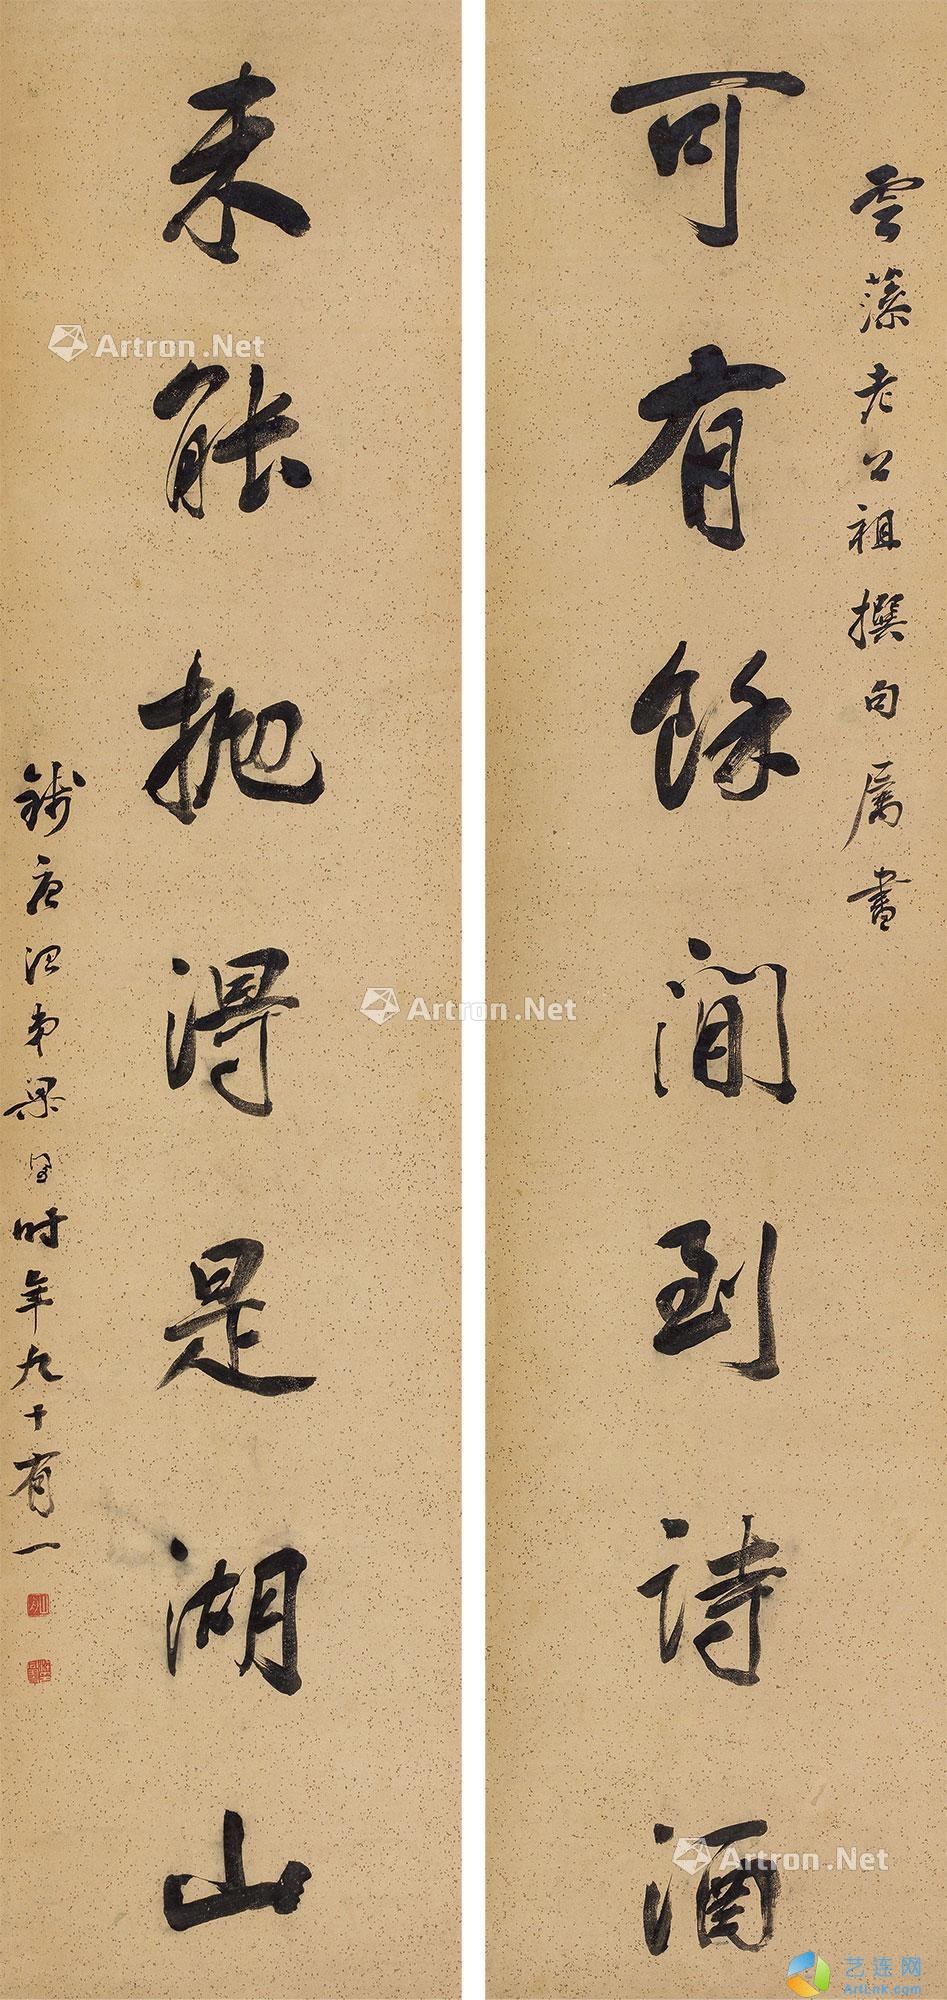 雲藻老公祖撰句屬書
可有餘閒到詩酒
未能抛得是湖山
錢唐治弟梁同書時年九十有一
Artron.Net
Artron.Net
Artron.Net
艺连网
ArtLnk.com